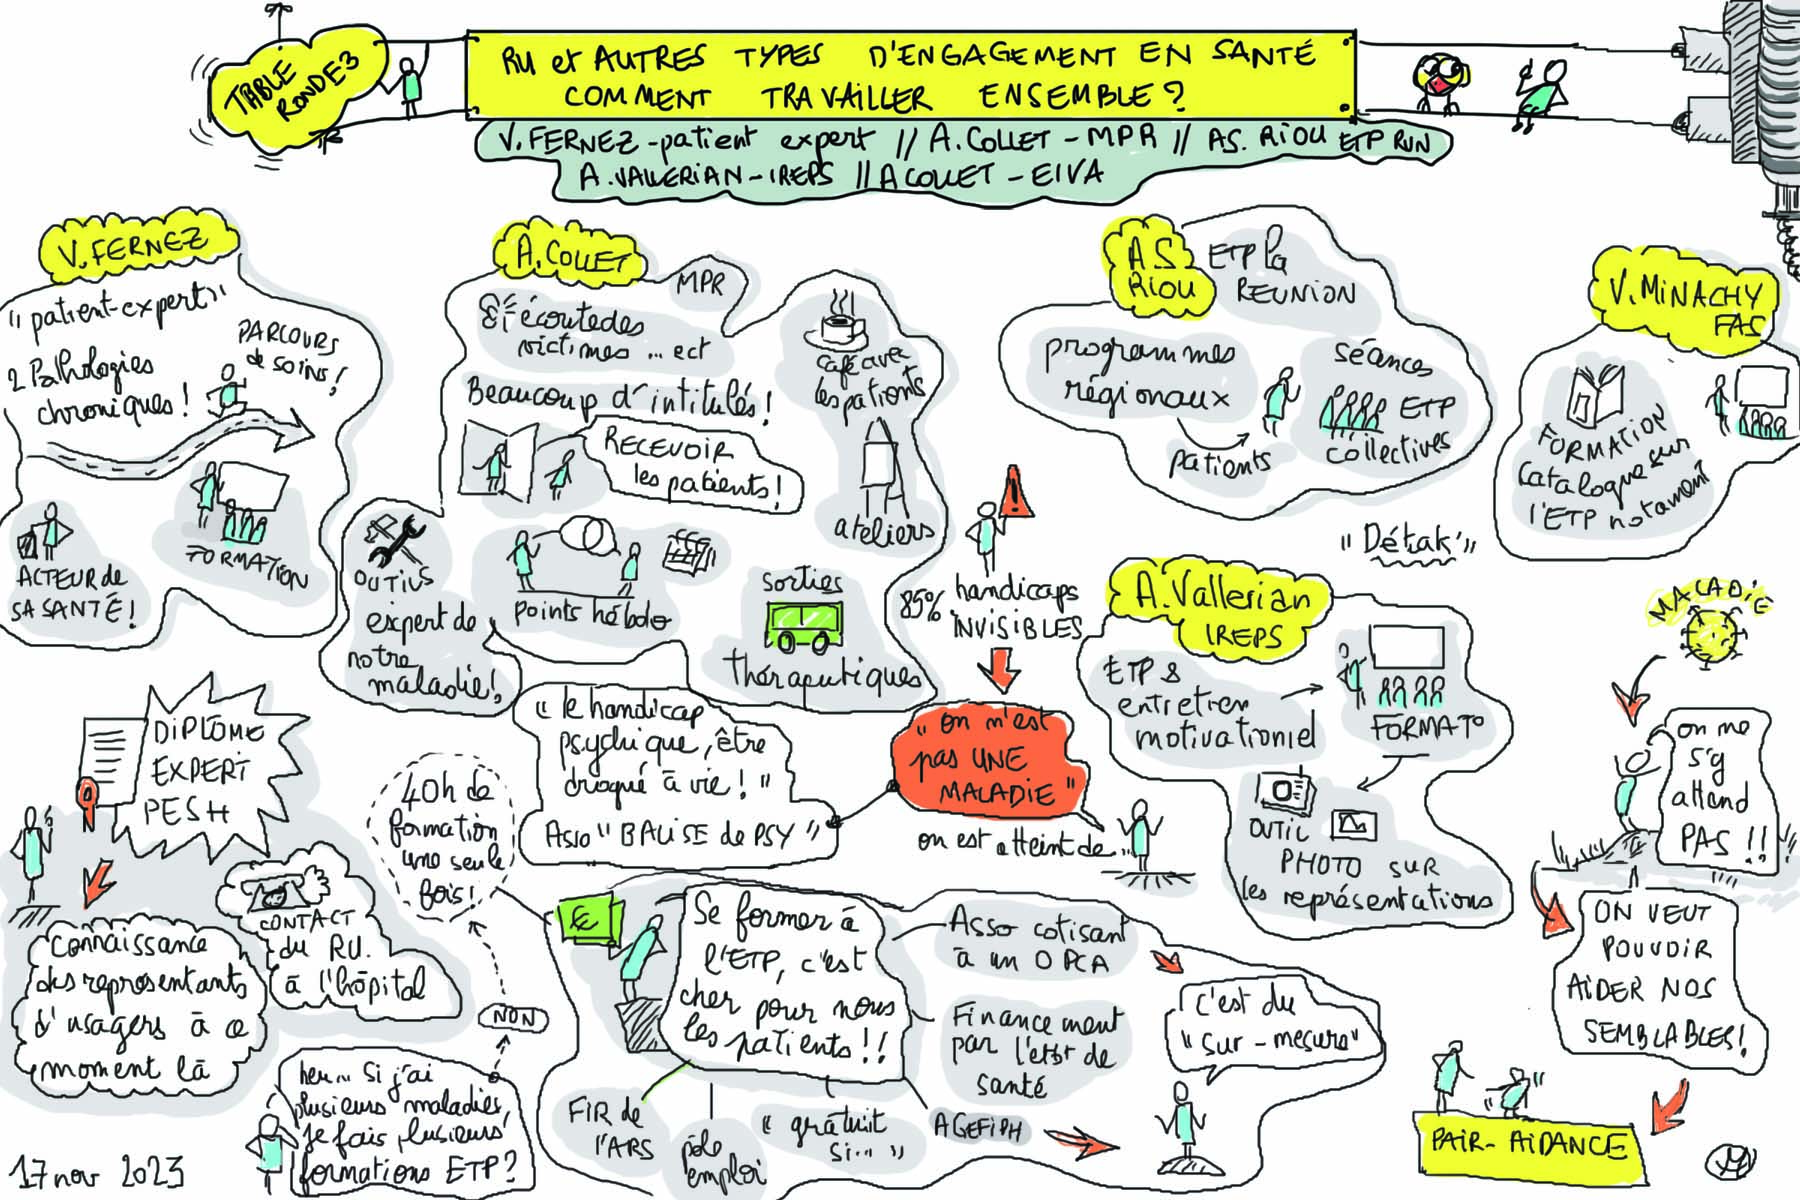 TABLE
RONDE 3
RU et AUTRES TYPES D'ENGAGEMENT EN SANTÉ
COMMENT TRAVAILLER ENSEMBLE ?
V. FERNEZ - patient expert // A. COLLET - MPR // AS. RIOU ETP RUN
A. VALLERIAN - IREPS // A COLLET - EIVA
V. FERNEZ
"patient-expert"
2 Pathologies
chroniques !
PARCOURS
de soins !
ACTEUR de
SA SANTÉ !
FORMATION
A. COLLET
MPR
écoute des
victimes ... ect
Beaucoup d'intitulés !
RECEVOIR
les patients !
café avec
les patients
ateliers
OUTILS
expert de
notre
maladie !
points hebdo
sorties
thérapeutiques
85%
handicaps
INVISIBLES
A S.
RIOU
ETP la
REUNION
programmes
régionaux
patients
séances
ETP
collectives
V. MINACHY
FAS
FORMATION
catalogue sur
l'ETP notament
"Détak'"
A. Vallerian
IREPS
ETP &
entretien
motivationiel
FORMATO
OUTIL
PHOTO SUR
les représentations
MALADIE
on ne
s'y
attend
PAS !!
ON VEUT
POUVOIR
AIDER NOS
SEMBLABLES !
PAIR-AIDANCE
DIPLOME
EXPERT
PESH
Connaissance
des representants
d'usagers à ce
moment là
CONTACT
du RU.
à l'hôpital
40h de
formation
une seule
fois !
NON
her... Si j'ai
plusieurs maladies,
je fais plusieurs
formations ETP ?
"le handicap
psychique, être
droqué à vie ! "
Asso "BALISE de PSY"
"on n'est
pas UNE
MALADIE"
on est atteint de...
€
Se former à
l'ETP, c'est
cher pour nous
les patients !!
Asso cotisant
à un OPCA
Financement
par l'etbt de
santé
FIR de
l'ARS
pôle
emploi
"gratuit
si..."
AGEFIPH
c'est du
"sur-mesure"
17 nov 2023